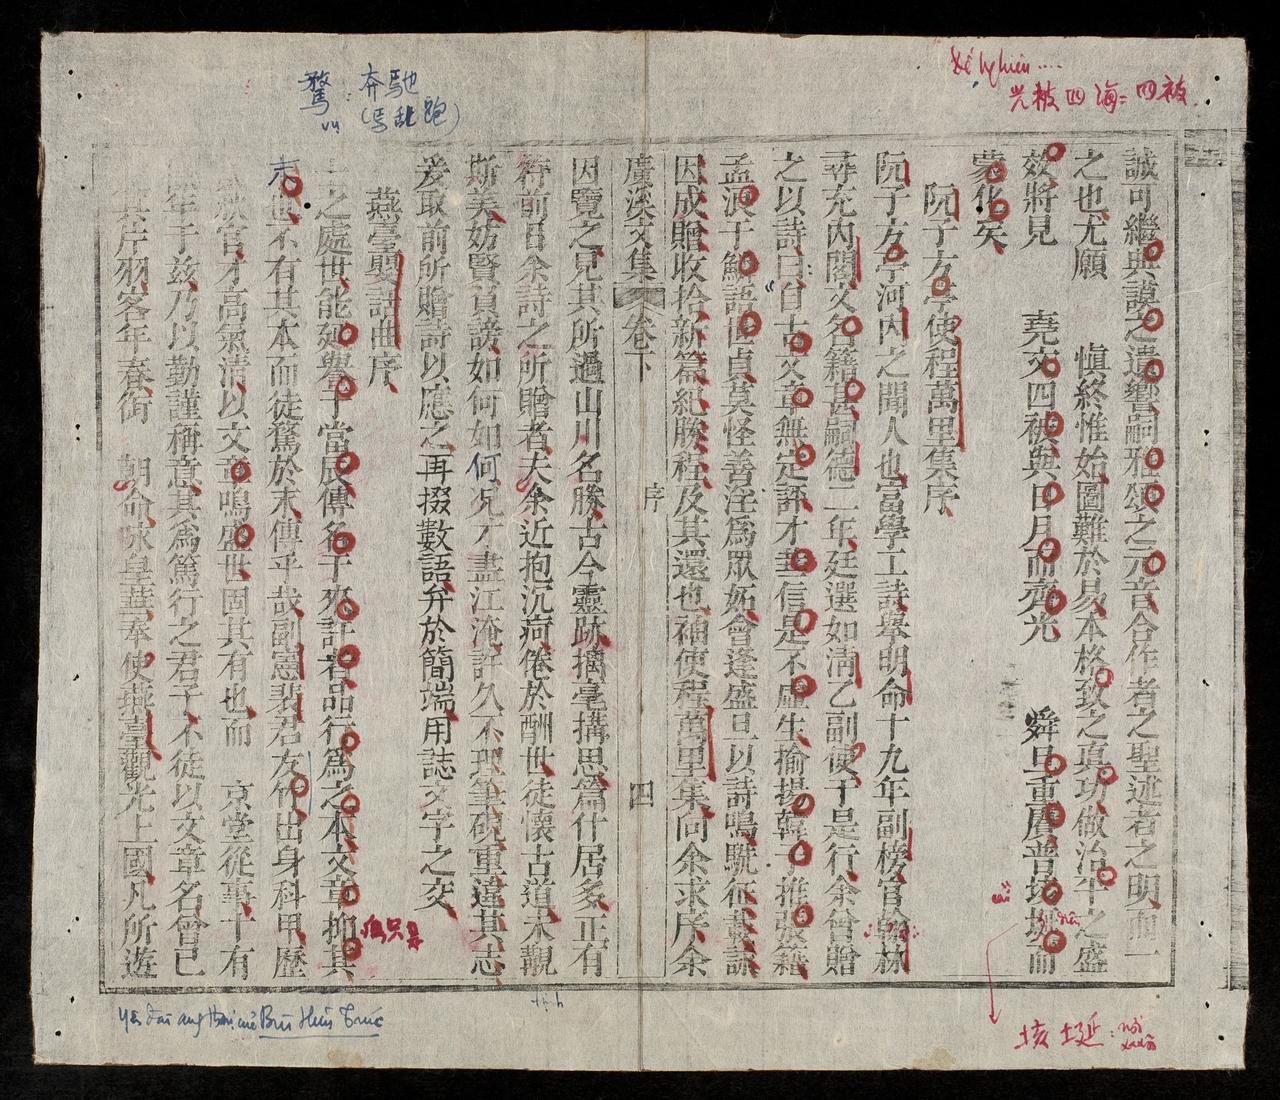 鶩 : 奔馳
vụ (馬乱跑)
光被四海=四被
誠可繼典謨之遺響嗣雅頌之元音合作者之聖述者之明而一
之也尤願 慎終惟始圖難於易本格致之真功做治平之盛
效將見 堯文四被與日月而齊光 舜旦重賡普垓埏而
蒙化矣
阮子方亭使程萬里集序
阮子方亭河內之聞人也富學工詩擧明命十九年副榜官翰林
尋充內閣文名籍甚嗣德二年廷選如淸乙副使于是行余曾贈
之以詩曰自古文章無定評才華信是不虛生揄揚韓子推張籍
孟浪于鱗語世貞莫怪善淫爲眾妬會逢盛旦以詩鳴駪征載詠
因成贈收拾新篇紀勝程及其還也袖使程萬里集向余求序余
廣溪文集 卷下 序 四
因覽之見其所過山川名勝古今靈跡摛毫搆思篇什居多正有
符前日余詩之所贈者夫余近抱沉疴倦於酬世徒懷古道未觀
斯美妨賢負謗如何如何况才盡江淹許久不理筆硯重違其志
爰取前所贈詩以應之再掇數語弁於簡端用誌文字之交
燕臺嬰話曲序
之處世能延譽于當辰傳名于來許者品行爲之本文章抑其
末世不有其本而徒鶩於末傳乎哉副憲裴君友竹出身科甲歷
官才高氣淸以文章鳴盛世固其有也而 京堂從事十有
年于兹乃以勤謹稱意其爲篤行之君子不徒以文章名曾已
芹羽客年春銜 朝命咏皇華奉使燕臺觀光上國凡所遊
垓埏:
Bùi Hữu Trúc
tịnh